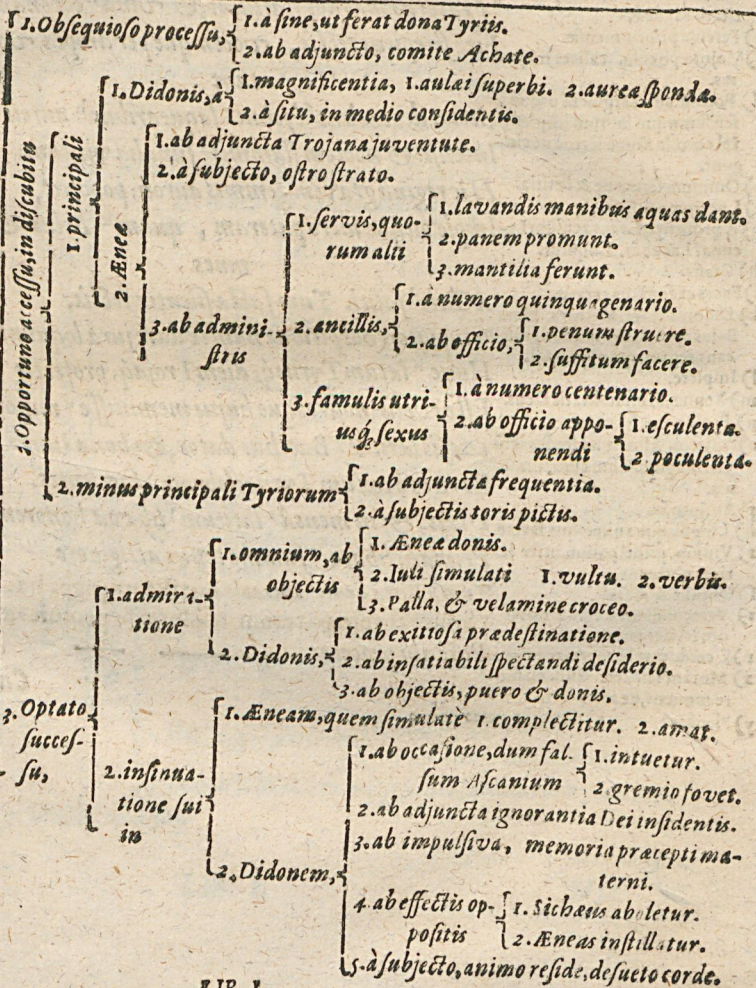 1. Obsequioso processu,
1. à fine, ut ferat dona Tyriis.
2. ab adjuncto, comite Achate.
2. Opportuno accessu, in discubitu
1. principali
1. Didonis, à
1. magnificentia, 1. aulæi superbi. 2. aurea sponda.
2. à situ, in medio considentis.
2. Æneæ
1. ab adjuncta Trojana juventute.
2. à subjecto, ostro strato.
3. ab admini-
stris
1. servis, quo-
rum alii
1. lavandis manibus aquas dant.
2. panem promunt.
3. mantilia ferunt.
2. ancillis,
1. à numero quinquagenario.
2. ab officio,
1. penum struere.
2. suffitum facere.
3. famulis utri-
usq́; sexus
1. à numero centenario.
2. ab officio appo-
nendi
1. esculenta.
2. poculenta.
2. minus principali Tyriorum
1. ab adjuncta frequentia.
2. à subjectis toris pictis.
3. Optato
succes-
su,
1. admira-
tione
1. omnium, ab
objectis
1. Æneæ donis.
2. Iuli simulati 1. vultu. 2. verbis.
3. Palla, & velamine croceo.
2. Didonis,
1. ab exitiosa prædestinatione.
2. ab insatiabili spectandi desiderio.
3. ab objectis, puero & donis.
2. insinua-
tione sui
in
1. Æneam, quem simulatè 1. complectitur. 2. amat.
2. Didonem,
1. ab occasione, dum fal-
sum Ascanium
1. intuetur.
2. gremio fovet.
2. ab adjuncta ignorantia Dei insidentis.
3. ab impulsiva, memoria præcepti ma-
terni.
4. ab effectis op-
positis
1. Sichæus aboletur.
2. Æneas instillatur.
5. à subjecto, animo reside, desueto corde.